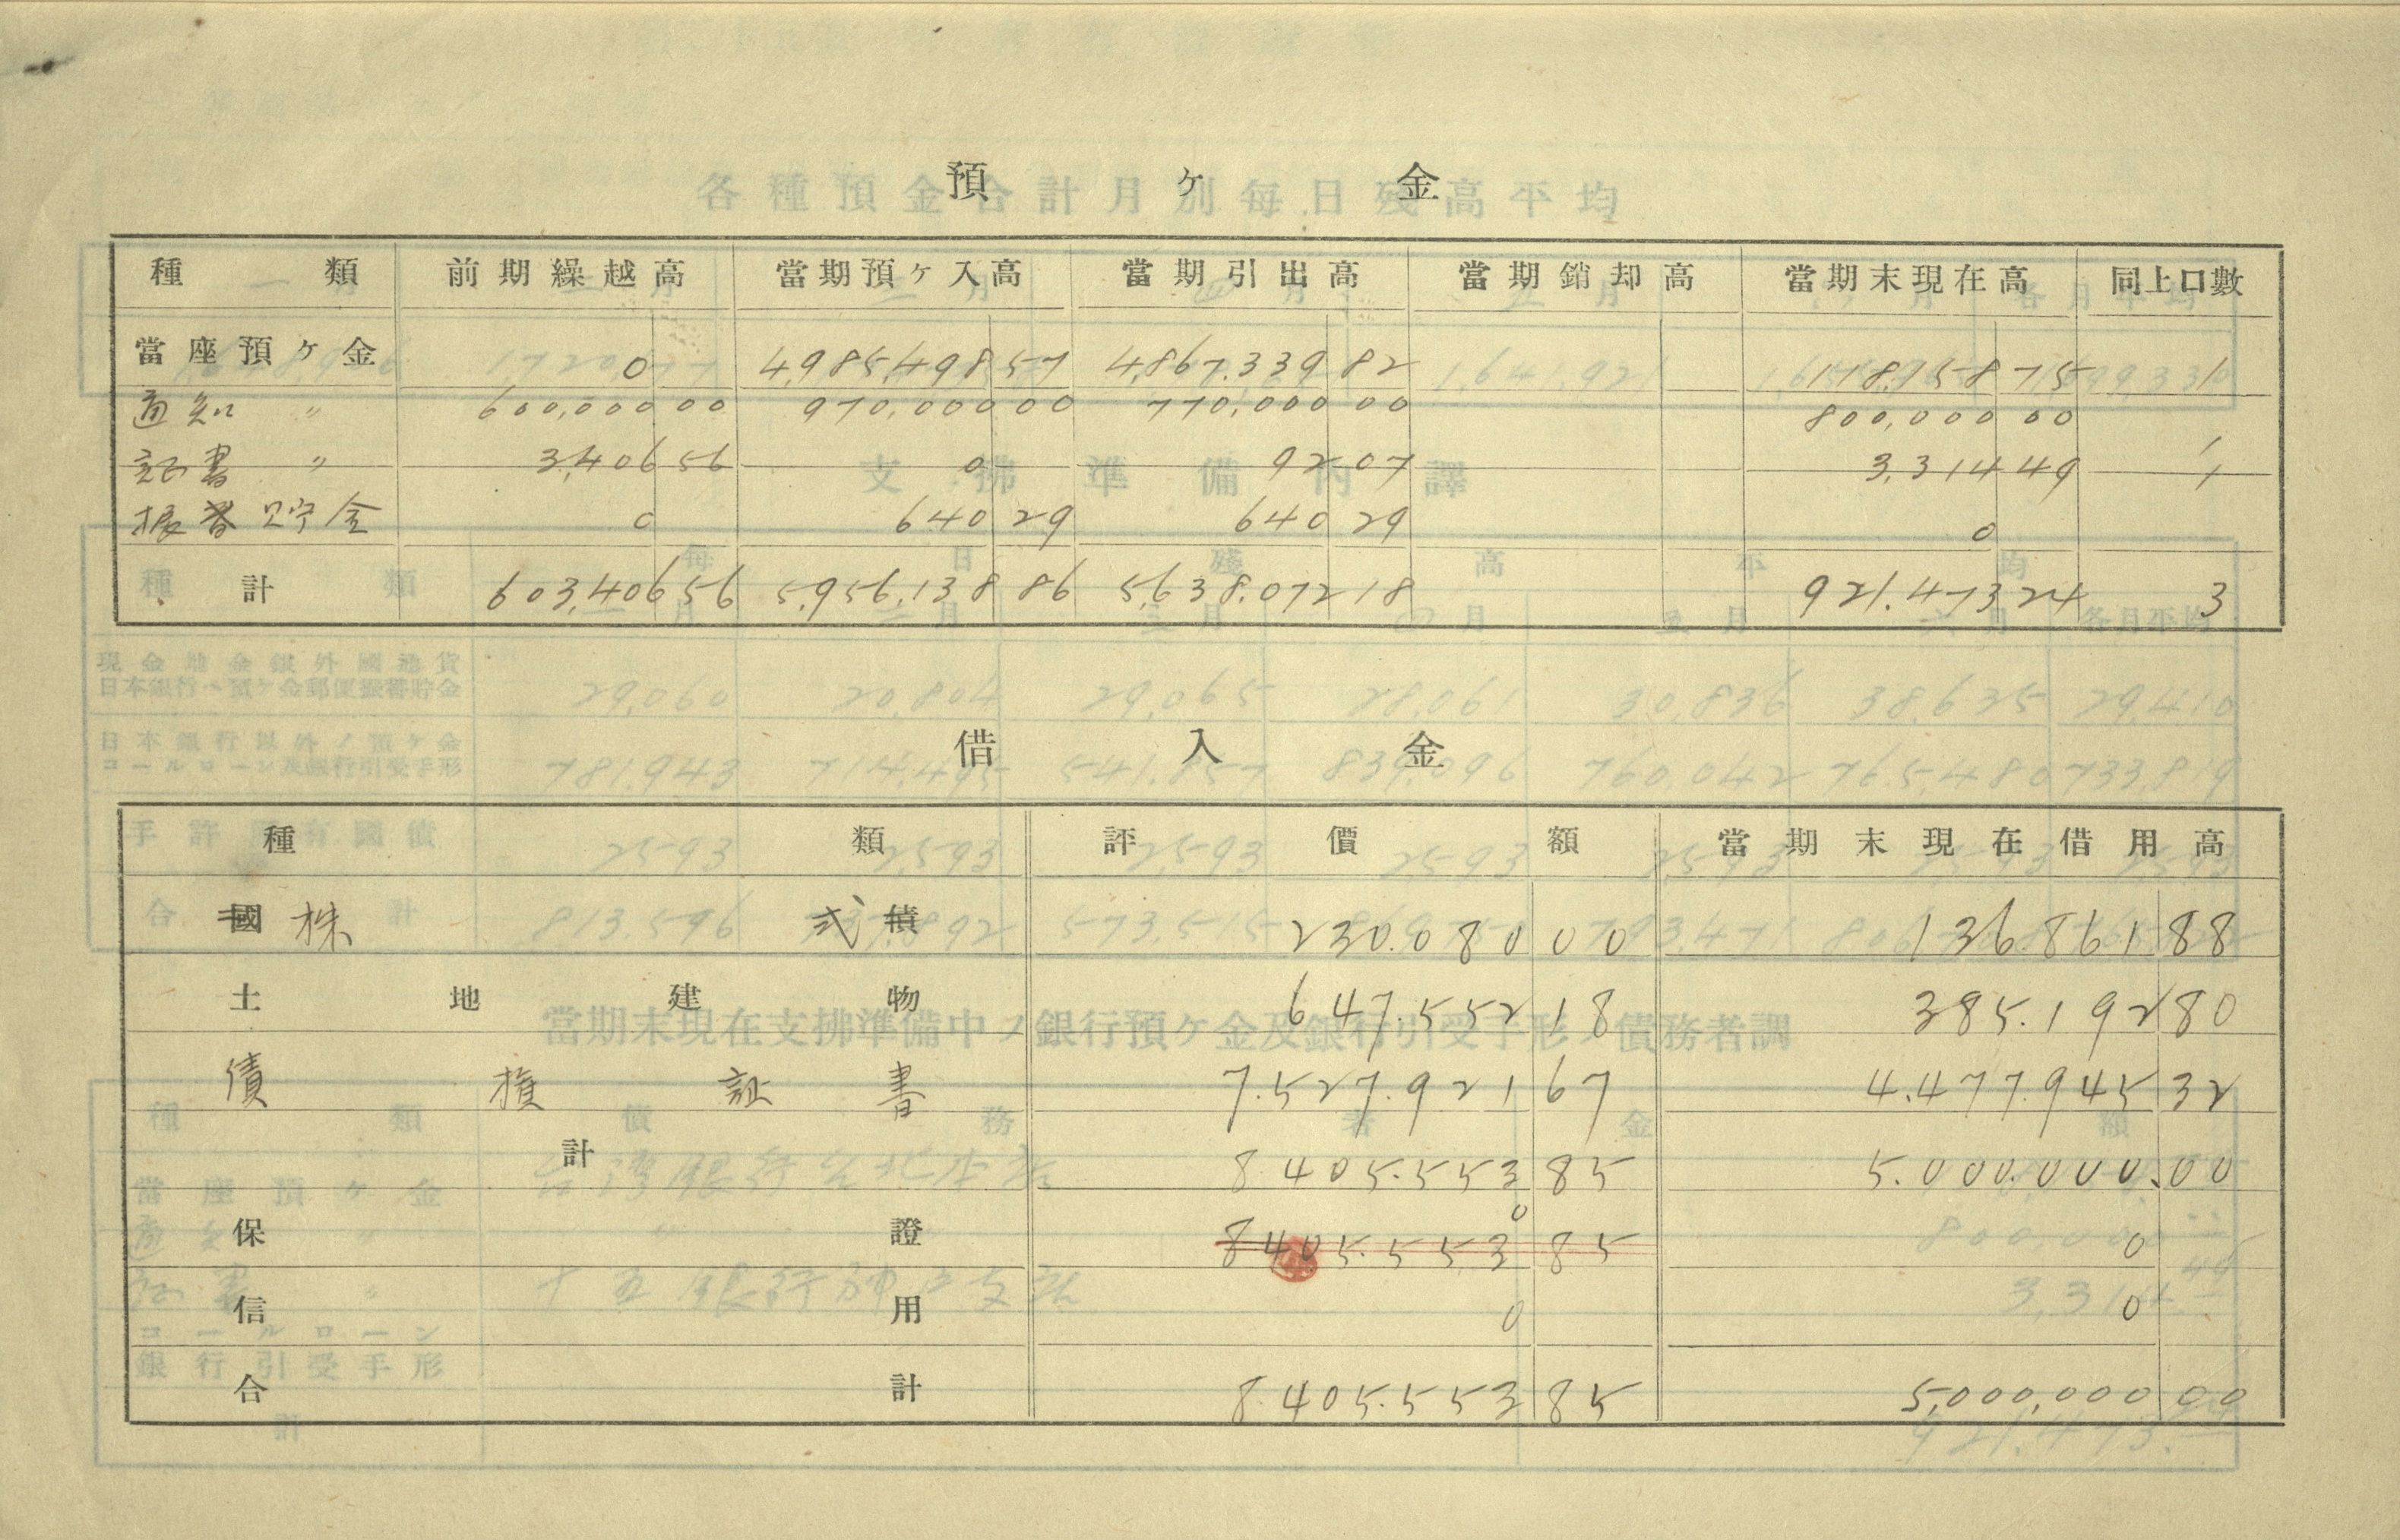 預ヶ金
種類 前期繰越高 當期預ヶ入高 當期引出高 當期銷却高 當期末現在高 同上口數
當座預ヶ金 0 4,985,498 57 4,867.339 82 118,158 75 1
通知 〃 600,000 00 970,000 00 770,000 00 800,000 00 1
証書 〃 3,406 56 0 92 07 3,314 49 1
振替貯金 0 640 29 640 29 0
計 603,406 56 5,956,138 86 5,638,072 18 921.473 24 3
借入金
種類 評價額 當期末現在借用高
國株 式債 230.080 00 136.861 88
土地建物 647.552 18 385.192 80
債権証書 7.527.921 67 4.477.945 32
計 8.405.553 85 5.000.000.00
0
保證 8405.553 85 0
信用 0 0
合計 8.405.553 85 5,000,000 00